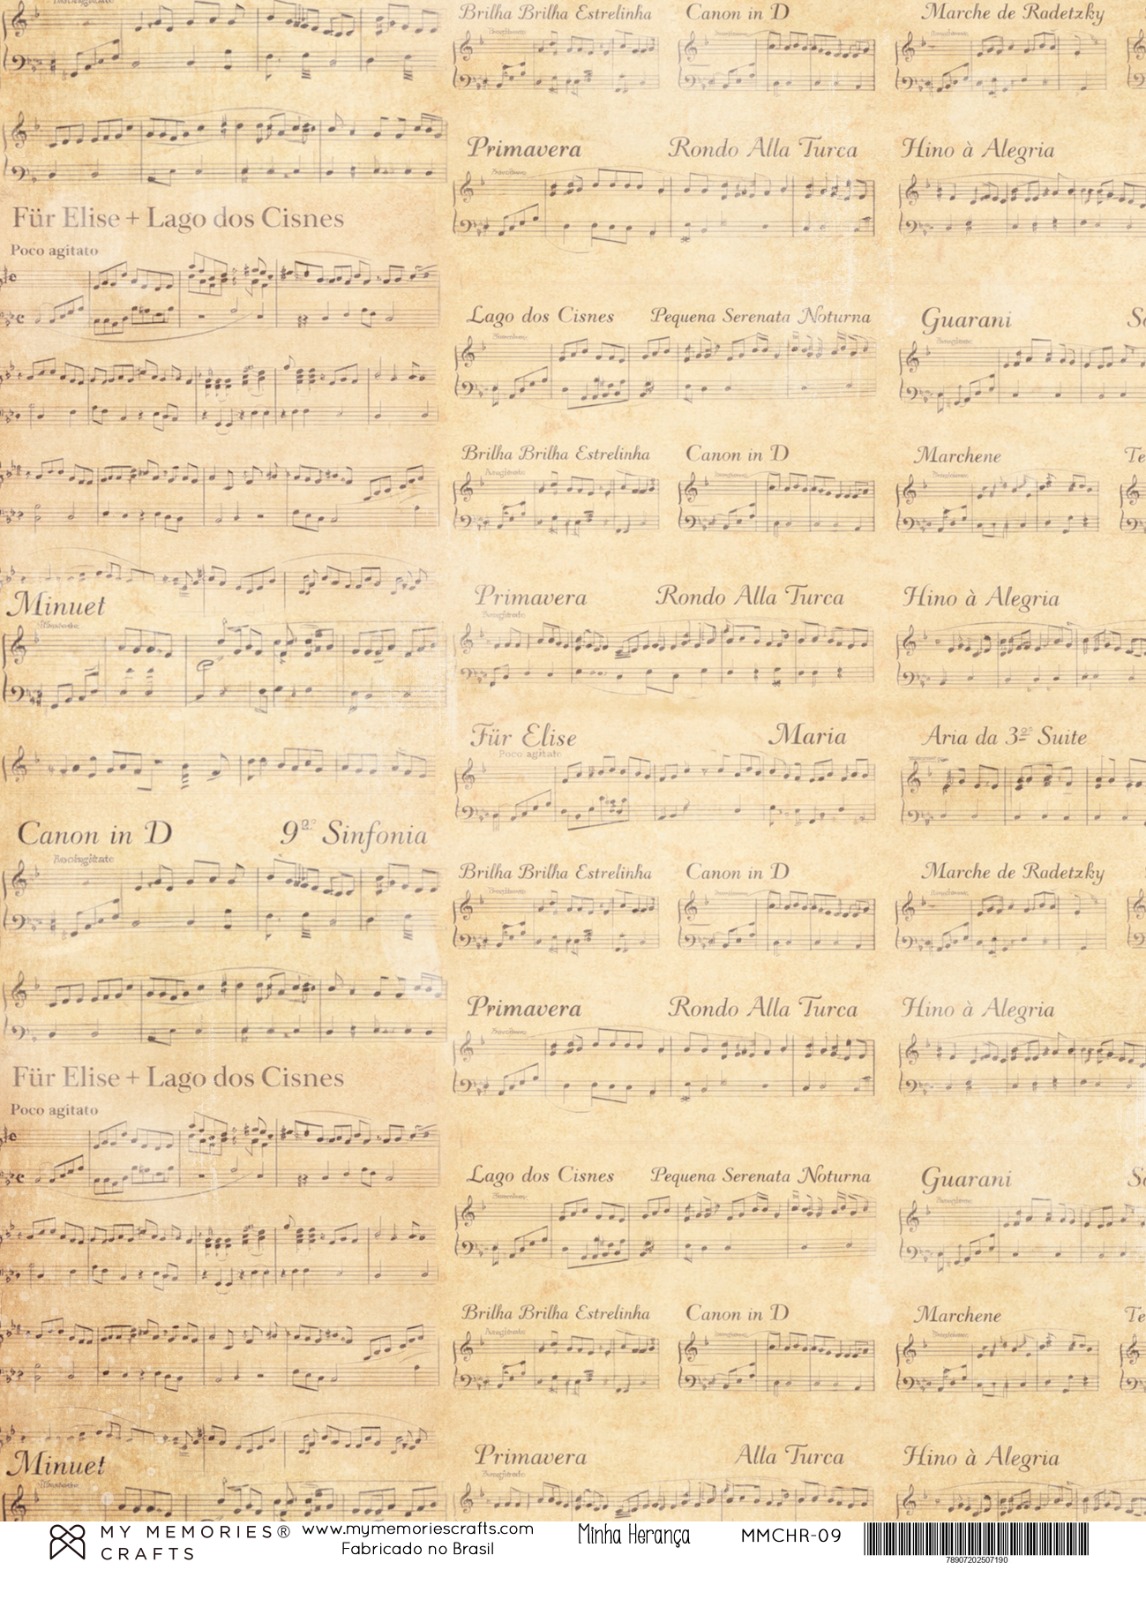 Brilha Brilha Estrelinha Canon in D Marche de Radetzky
Primavera Rondo Alla Turca Hino à Alegria
Für Elise + Lago dos Cisnes
Poco agitato
Lago dos Cisnes Pequena Serenata Noturna Guarani
Brilha Brilha Estrelinha Canon in D Marchene Te
Primavera Rondo Alla Turca Hino à Alegria
Minuet
Für Elise Maria Aria da 3ª Suite
Poco agitato
Canon in D 9ª Sinfonia
Brilha Brilha Estrelinha Canon in D Marche de Radetzky
Primavera Rondo Alla Turca Hino à Alegria
Für Elise + Lago dos Cisnes
Poco agitato
Lago dos Cisnes Pequena Serenata Noturna Guarani
Brilha Brilha Estrelinha Canon in D Marchene Te
Primavera Alla Turca Hino à Alegria
Minuet
MY MEMORIES® CRAFTS
www.mymemoriescrafts.com
Fabricado no Brasil
Minha Herança
MMCHR-09
78907202507190